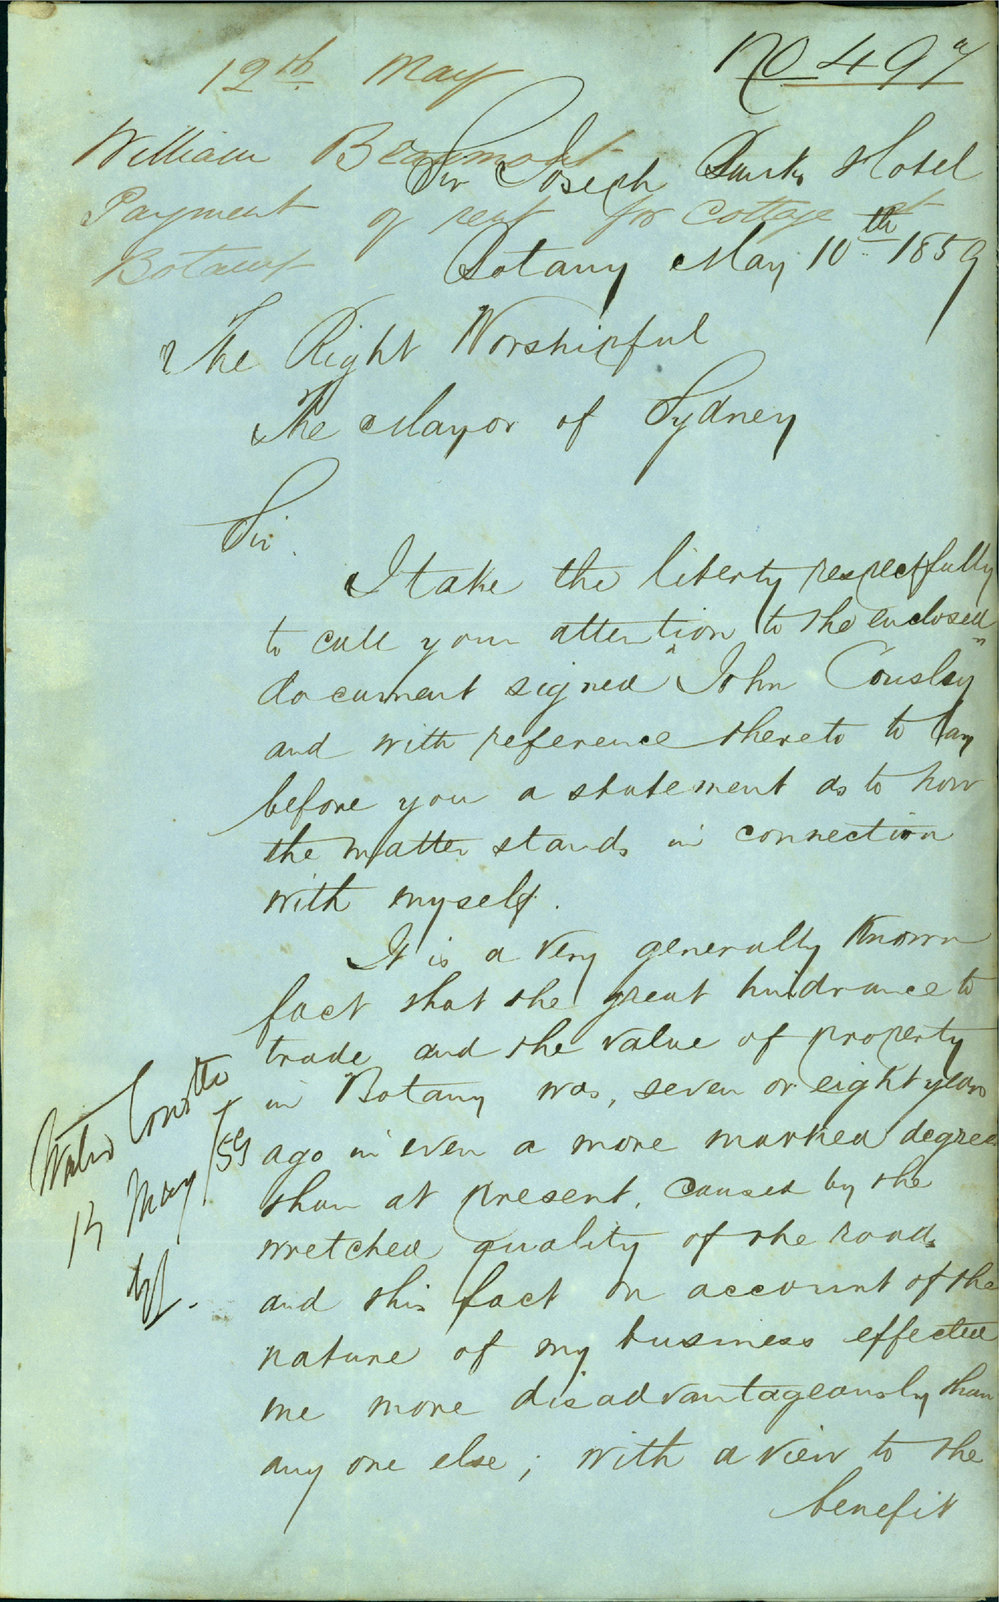 12th May
No 497
William Beaumont
Payment of rent for Cottage at
Botany
Sir Joseph Banks Hotel
Botany May 10th 1859
The Right Worshipful
The Mayor of Sydney
Sir.
I take the liberty respectfully
to call your attention to the enclosed
document signed "John Cousley"
and with reference thereto to lay
before you a statement as to how
the matter stands in connection
with myself.
It is a very generally known
fact that the great hindrance to
trade and the value of property
in Botany was, seven or eight years
ago in even a more marked degree
than at present, caused by the
wretched quality of the road
and this fact on account of the
nature of my business effected
me more disadvantageously than
any one else; with a view to the
benefit
Water Comtte
May /59